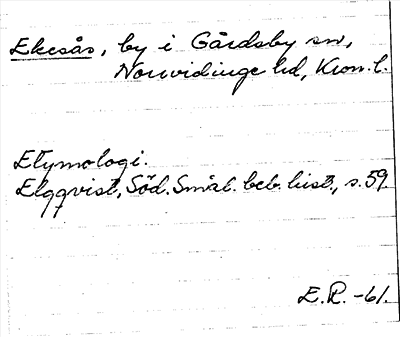 Ekesås, by i Gårdsby sn,
Norrvidinge hd, Kron. l.
Etymologi.
Elgqvist, Söd. Smål. beb. hist., s. 59.
E. R. -61.